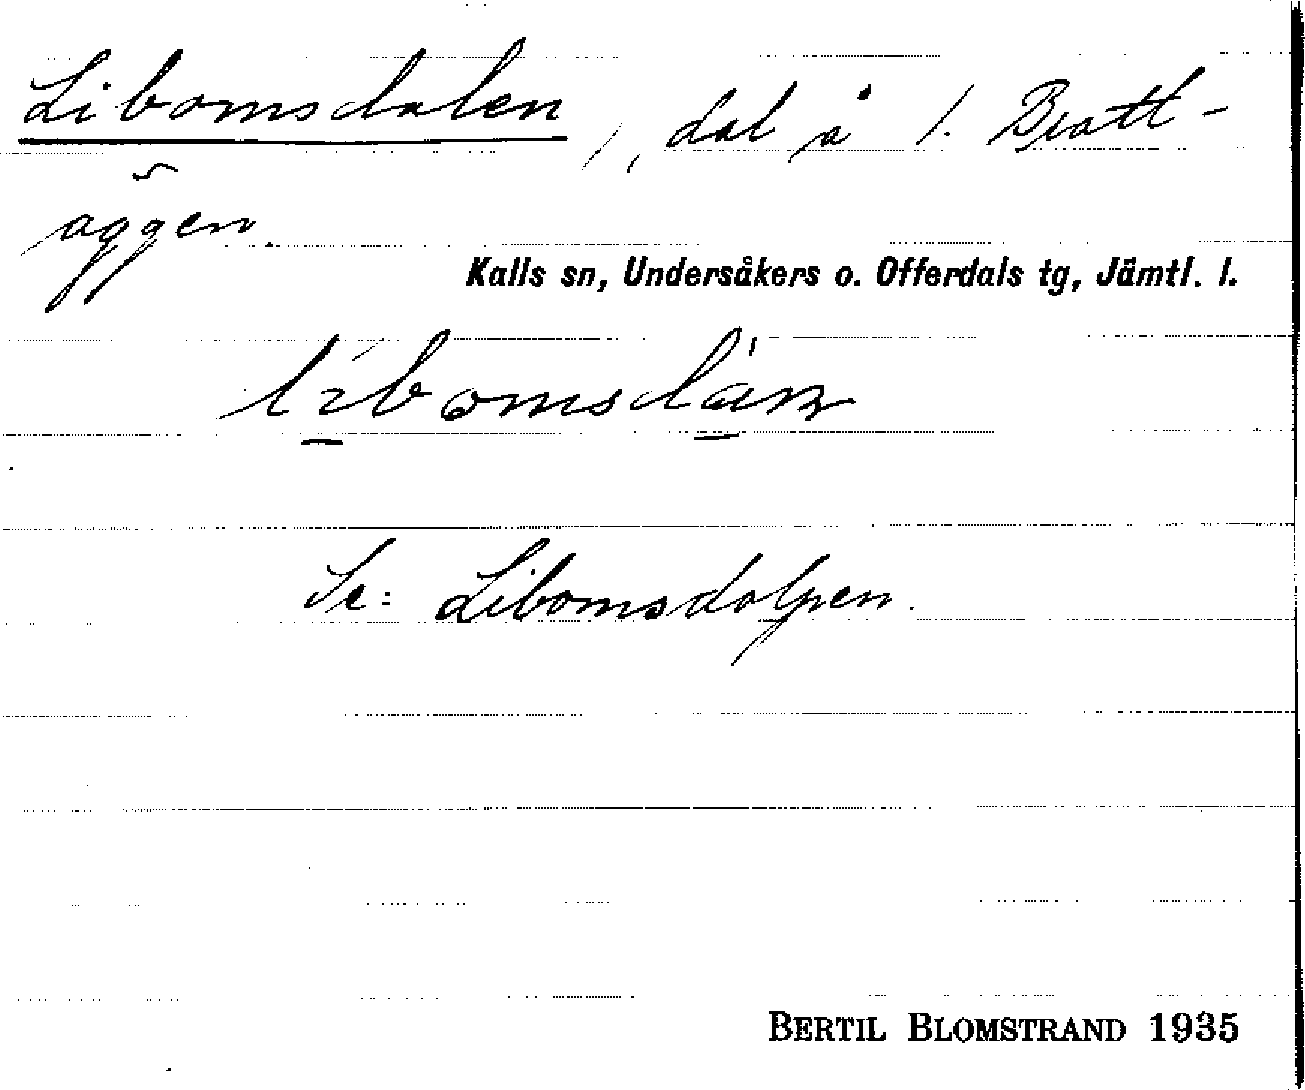 Libomsdalen, dal å l. Bratt-
aggen.
Kalls sn, Undersåkers o. Offerdals tg, Jämtl. l.
Se: Libomsdalpen.
BERTIL BLOMSTRAND 1935